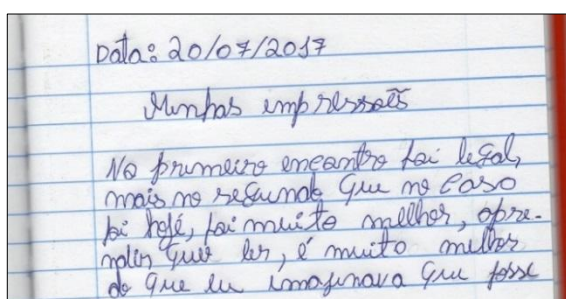 Data: 20/07/2017
Minhas impressoẽs
No primeiro encontro foi legal,
mais no segundo que no caso
foi hojé, foi muito melhor, apre-
ndir que ler, é muito milhor
do que eu imaginava que fosse